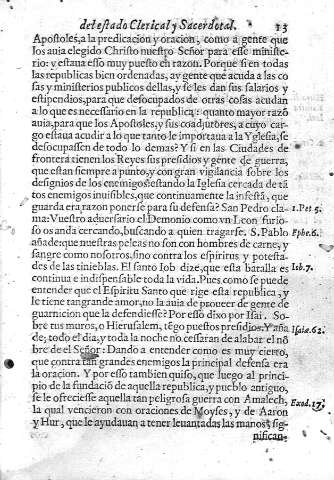 del estado Clerical y Sacerdotal. 13
Apostoles, a la predicacion y oracion, como a gente que
los auia elegido Christo nuestro Señor para esse ministe-
rio: y estaua esso muy puesto en razon. Porque si en todas
las republicas bien ordenadas, ay gente que acuda a las co
sas y ministerios publicos dellas, y se les dan sus salarios y
estipendios, para que desocupados de otras cosas acudan
a lo que es necessario en la republica: quanto mayor razõ
auia, para que los Apostoles, y sus coadjutores, a cuyo car-
go estaua acudir a lo que tanto le importaua a la Yglesia, se
desocupassen de todo lo demas? Y si en las Ciudades de
frontera tienen los Reyes sus presidios y gente de guerra,
que estan siempre a punto, y con gran vigilancia sobre los
designios de los enemigos: estando la Iglesia cercada de tã
tos enemigos inuisibles, que continuamente la infestã, que
guarda era razon ponerse para su defensa? San Pedro cla- 1. Pet 5.
ma: Vuestro aduersario el Demonio como vn Leon furio-
so os anda cercando, buscando a quien tragarse. S. Pablo Ephe. 6.
añade: que nuestras peleas no son con hombres de carne, y
sangre como nosotros, sino contra los espiritus y potesta-
des de las tinieblas. El santo Iob dize, que esta batalla es Iob. 7.
continua e indispensable toda la vida. Pues como se puede
entender que el Espiritu Santo que rige esta republica, y
le tiene tan grande amor, no la auia de proueer de gente de
guarnicion que la defendiesse? Por esso dixo por Isai. So-
bre tus muros, o Hierusalem, tẽgo puestos presidios. Y aña Isaiæ. 62.
de, todo el dia, y toda la noche no cessaran de alabar el nõ
bre de el Señor: Dando a entender como es muy cierto,
que contra tan grandes enemigos la principal defensa era
la oracion. Y por esso tambien quiso, que luego al princi-
pio de la fundaciõ de aquella republica, y pueblo antiguo,
se le ofreciesse aquella tan peligrosa guerra con Amalech,
la qual vencieron con oraciones de Moyses, y de Aaron Exod. 17.
y Hur, que le ayudauan a tener leuantadas las manos, sig-
nifican-